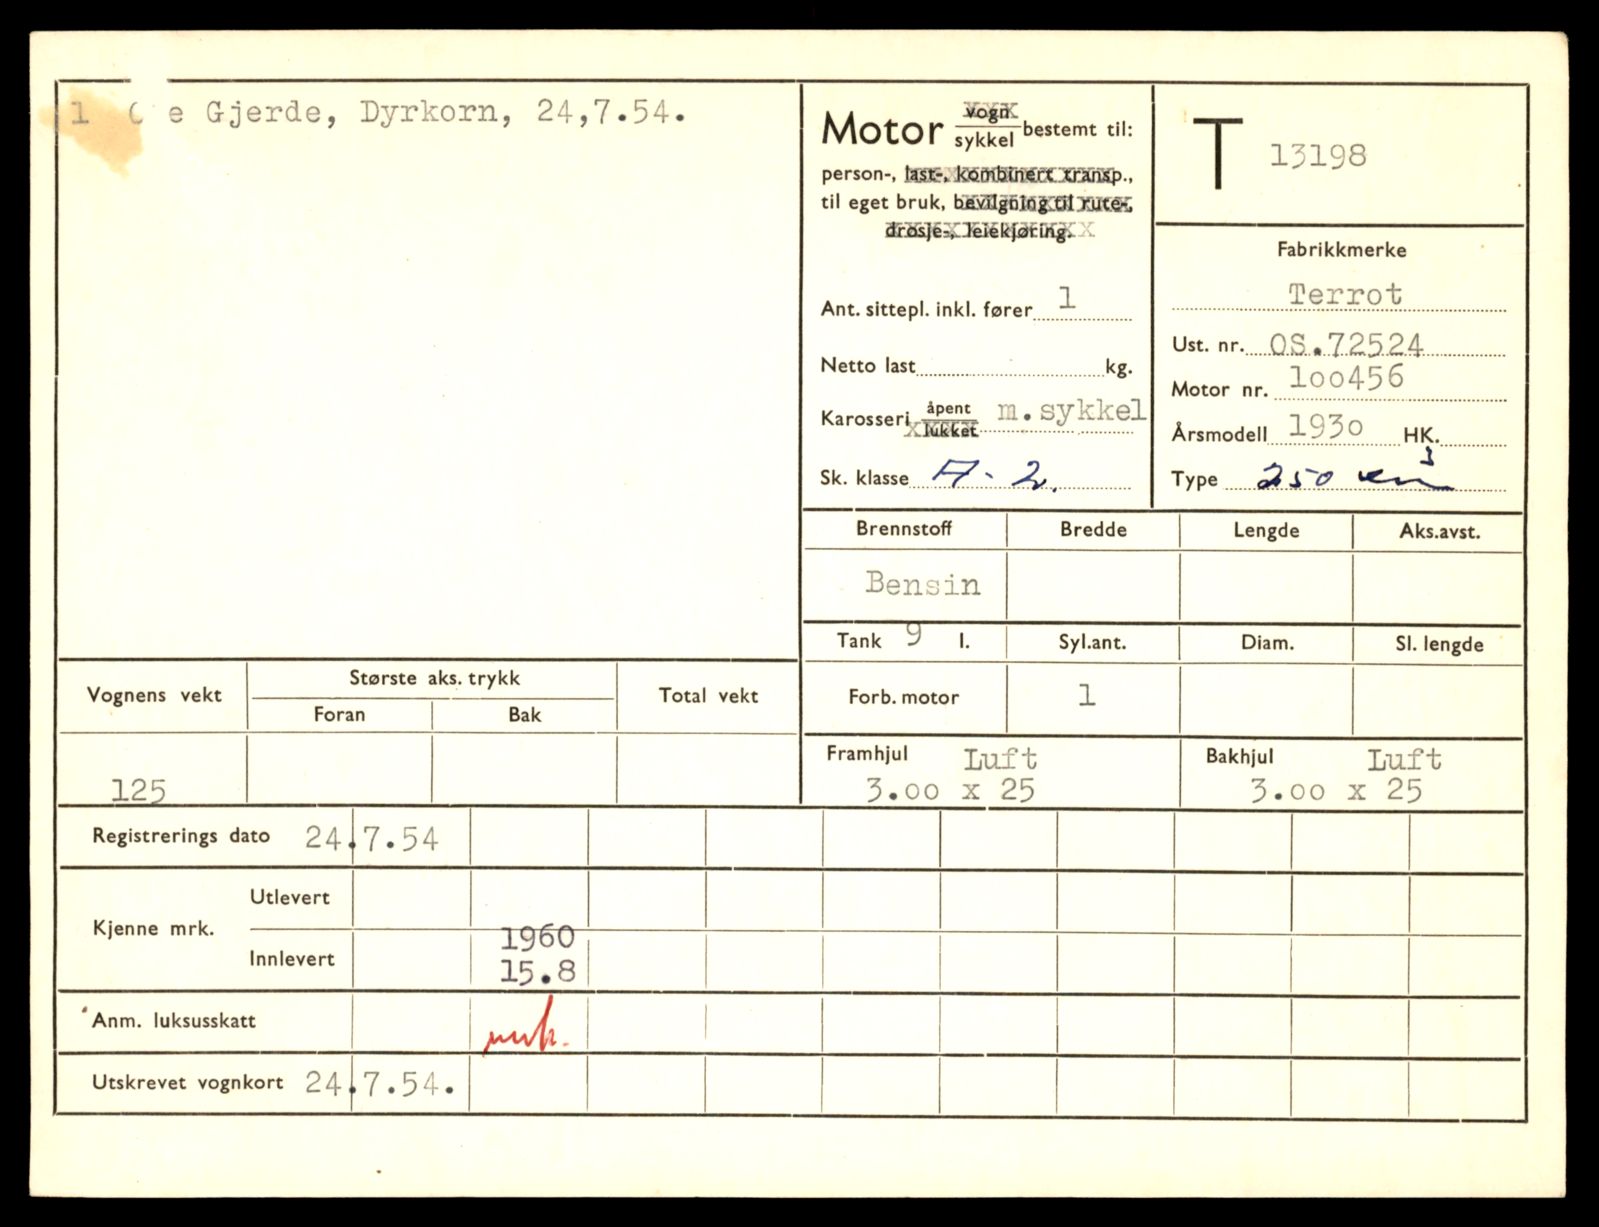 1 e Gjerde, Dyrkorn, 24,7.54.
Motor vogn sykkel bestemt til:
person-, last-, kombinert transp.,
til eget bruk, bevilgning til rute-,
drosje-, leiekjøring.
Ant. sittepl. inkl. fører 1
Netto last kg.
Karosseri åpent lukket m.sykkel
Sk. klasse A-2.
T 13198
Fabrikkmerke
Terrot
Ust. nr. OS.72524
Motor nr. 100456
Årsmodell 1930 HK.
Type 250 cm3
Brennstoff Bredde Lengde Aks.avst.
Bensin
Tank 9 l. Syl.ant. Diam. Sl. lengde
Forb. motor 1
Framhjul Luft Bakhjul Luft
3.00 x 25 3.00 x 25
Vognens vekt Største aks. trykk Total vekt
Foran Bak
125
Registrerings dato 24.7.54
Kjenne mrk. Utlevert
Innlevert 1960
15.8
Anm. luksusskatt
Utskrevet vognkort 24.7.54.